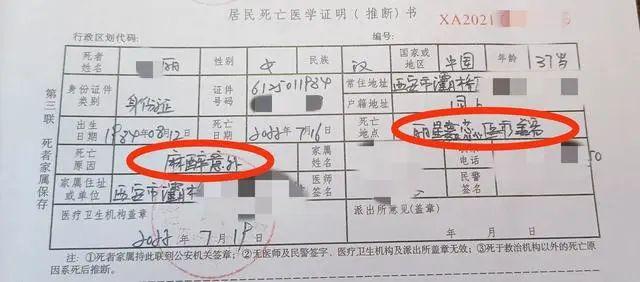 居民死亡医学证明(推断)书
XA2021
行政区划代码: 编号:
死者姓名 丽 性别 女 民族 汉 国家或地区 中国 年龄 37岁
身份证件类别 身份证 证件号码 常住地址 西安市灞桥
户籍地址 同上
出生日期 1984年08月12日 死亡日期 2022年7月16日 死亡地点
死亡原因 麻醉意外 家属姓名 电话 50
家属住址或单位 西安市灞桥 医师签名 民警签名
医疗卫生机构盖章 派出所意见(盖章)
2022年7月19日 年 月 日
注:①死者家属持此联到公安机关签章;②无医师及民警签字、医疗卫生机构及派出所盖章无效;③死于救治机构以外的死亡原
因系死后推断。
第三联 死者家属保存